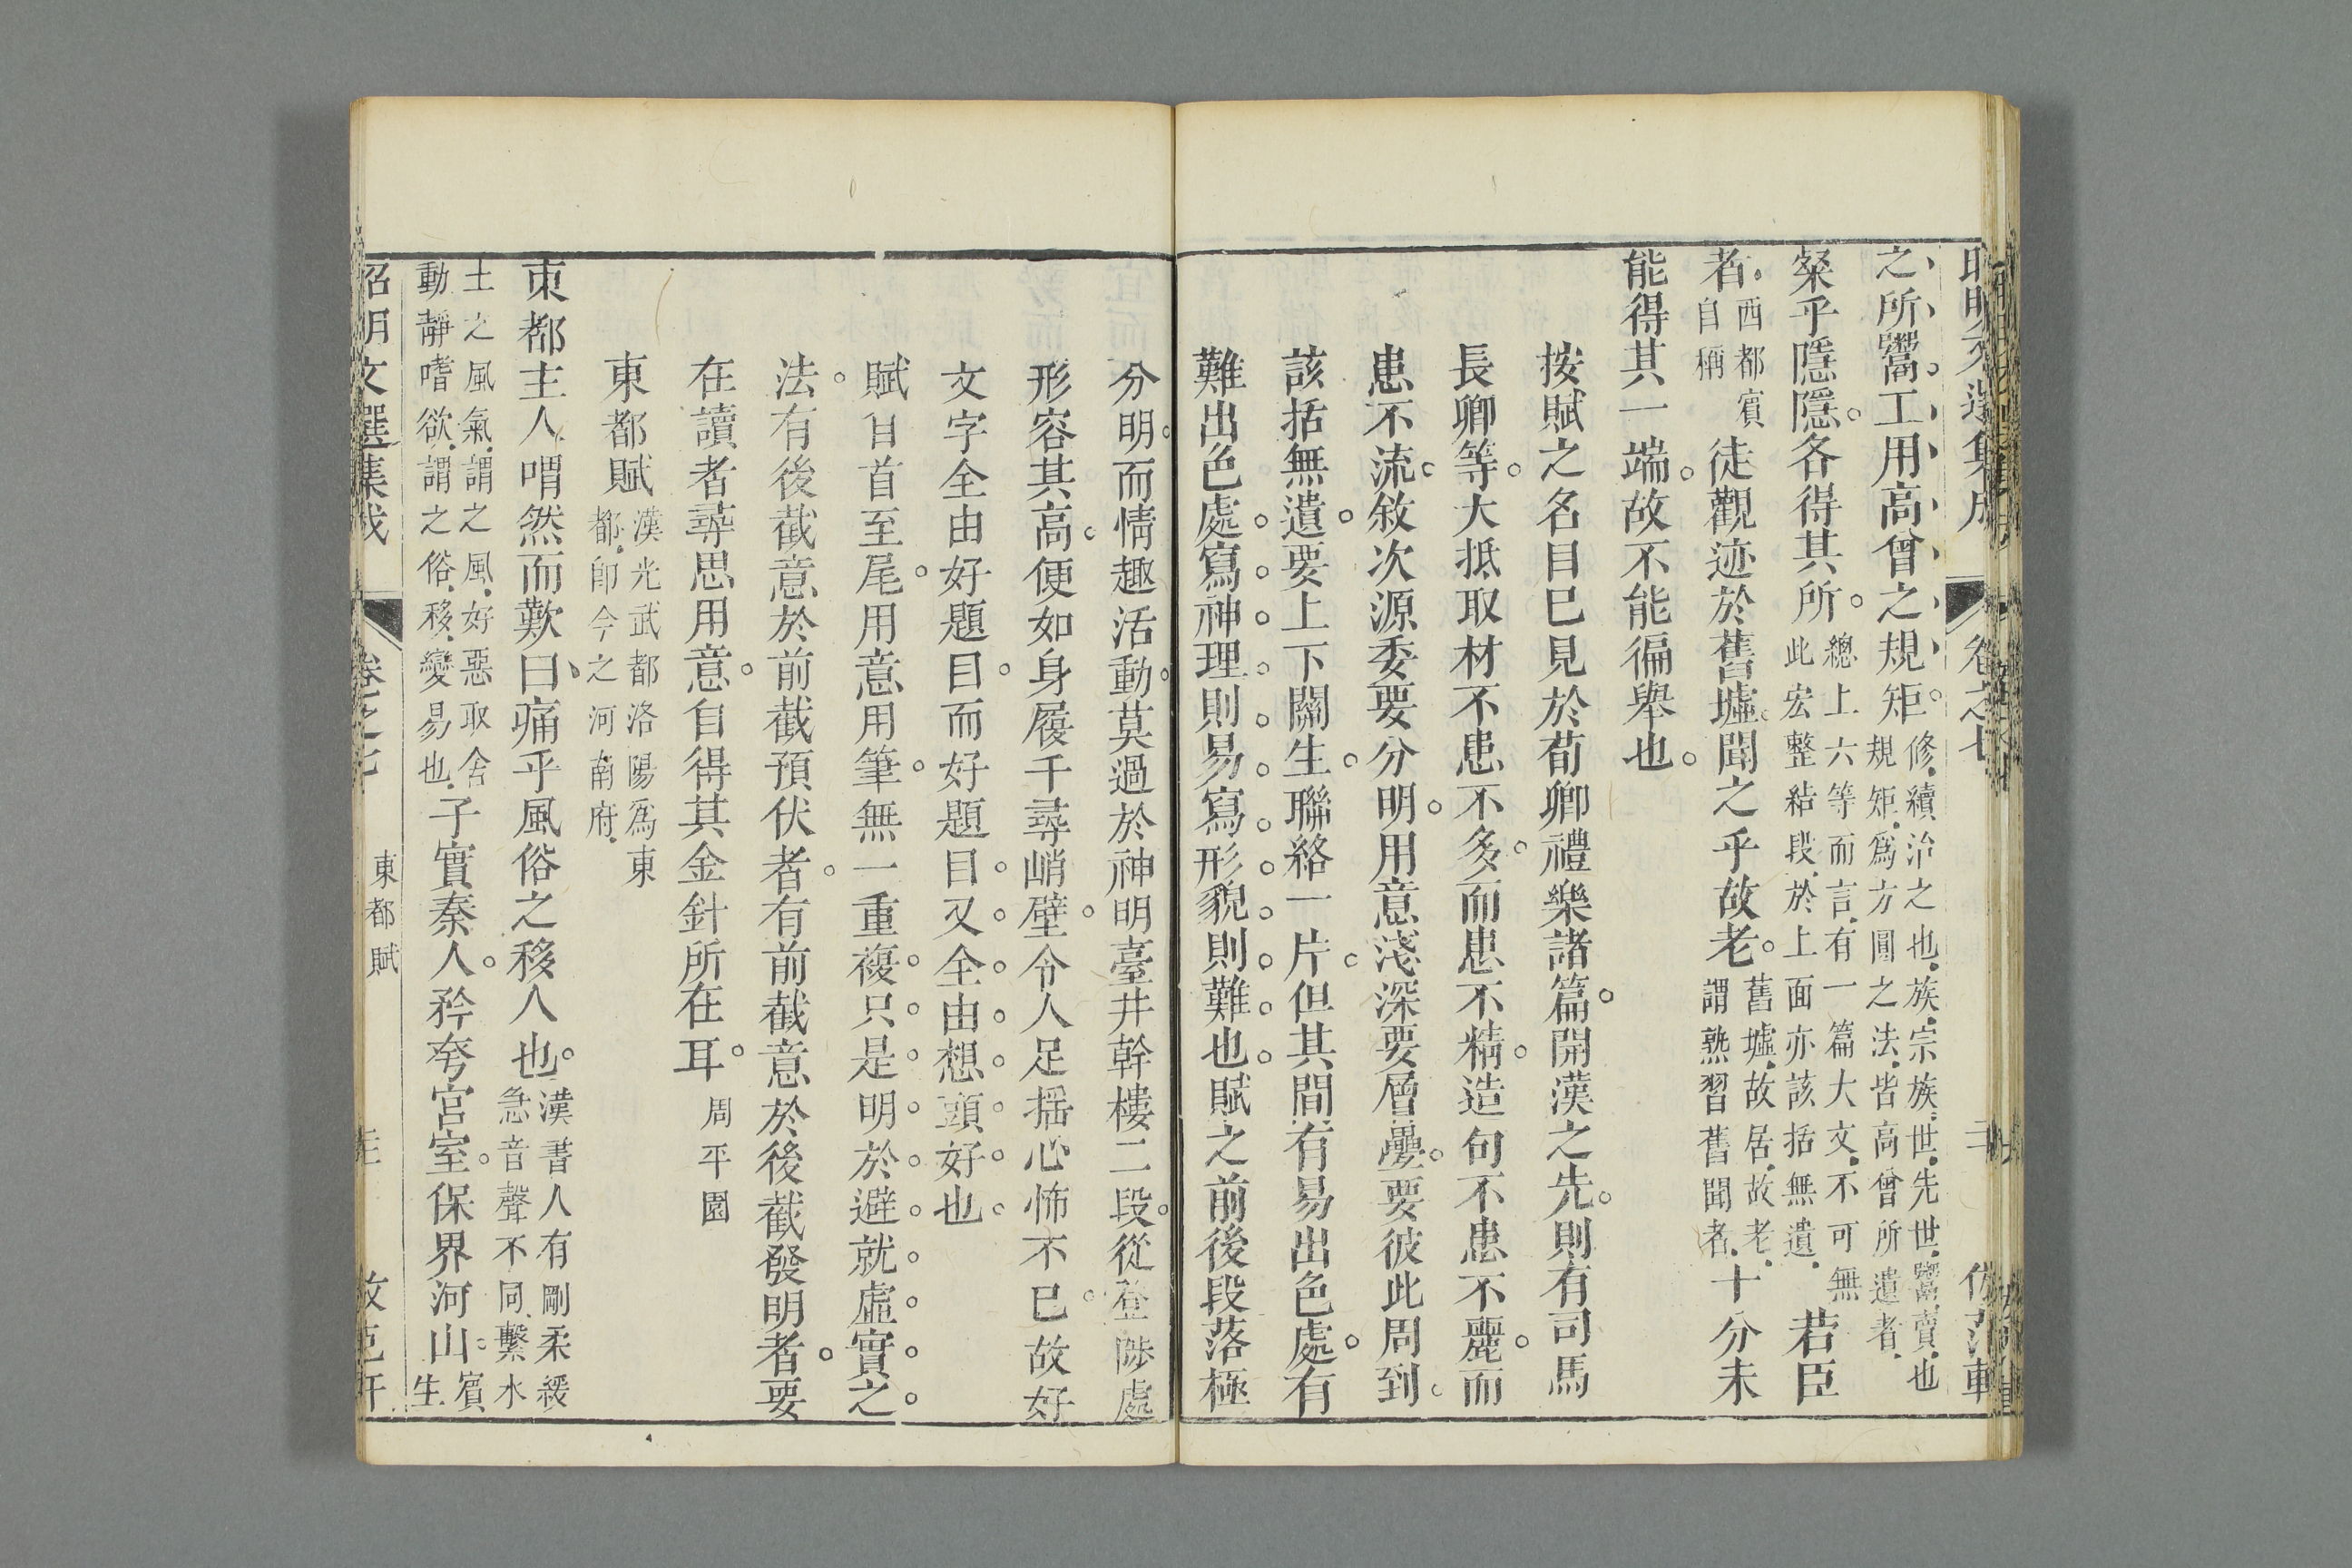 之所鬻工用高曾之規矩修續治之也族宗族世先世鬻賣也規矩爲方圓之法皆高曾所遺者
粲乎隱隱各得其所總上六等而言有一篇大文不可無此宏整結段於上面亦該括無遺若臣
者西都賓自稱徒觀迹於舊墟聞之乎故老舊墟故居故老謂熟習舊聞者十分未
能得其一端故不能徧舉也
按賦之名目已見於荀卿禮樂諸篇開漢之先則有司馬
長卿等大抵取材不患不多而患不精造句不患不麗而
患不流敘次源委要分明用意淺深要層疊要彼此周到
該括無遺要上下關生聯絡一片但其間有易出色處有
難出色處寫神理則易寫形貌則難也賦之前後段落極
分明而情趣活動莫過於神明臺井幹樓二段從登陟處
形容其高便如身履千尋峭壁令人足搖心怖不已故好
文字全由好題目而好題目又全由想頭好也
賦自首至尾用意用筆無一重複只是明於避就虛實之
法有後截意於前截預伏者有前截意於後截發明者要
在讀者尋思用意自得其金針所在耳周平園
東都賦漢光武都洛陽爲東都卽今之河南府
東都主人喟然而歎曰痛乎風俗之移人也漢書人有剛柔緩急音聲不同繫水
土之風氣謂之風好惡取舍動靜嗜欲謂之俗移變易也子實秦人矜夸宮室保界河山賓生
昭明文選集成 卷之七 東都賦